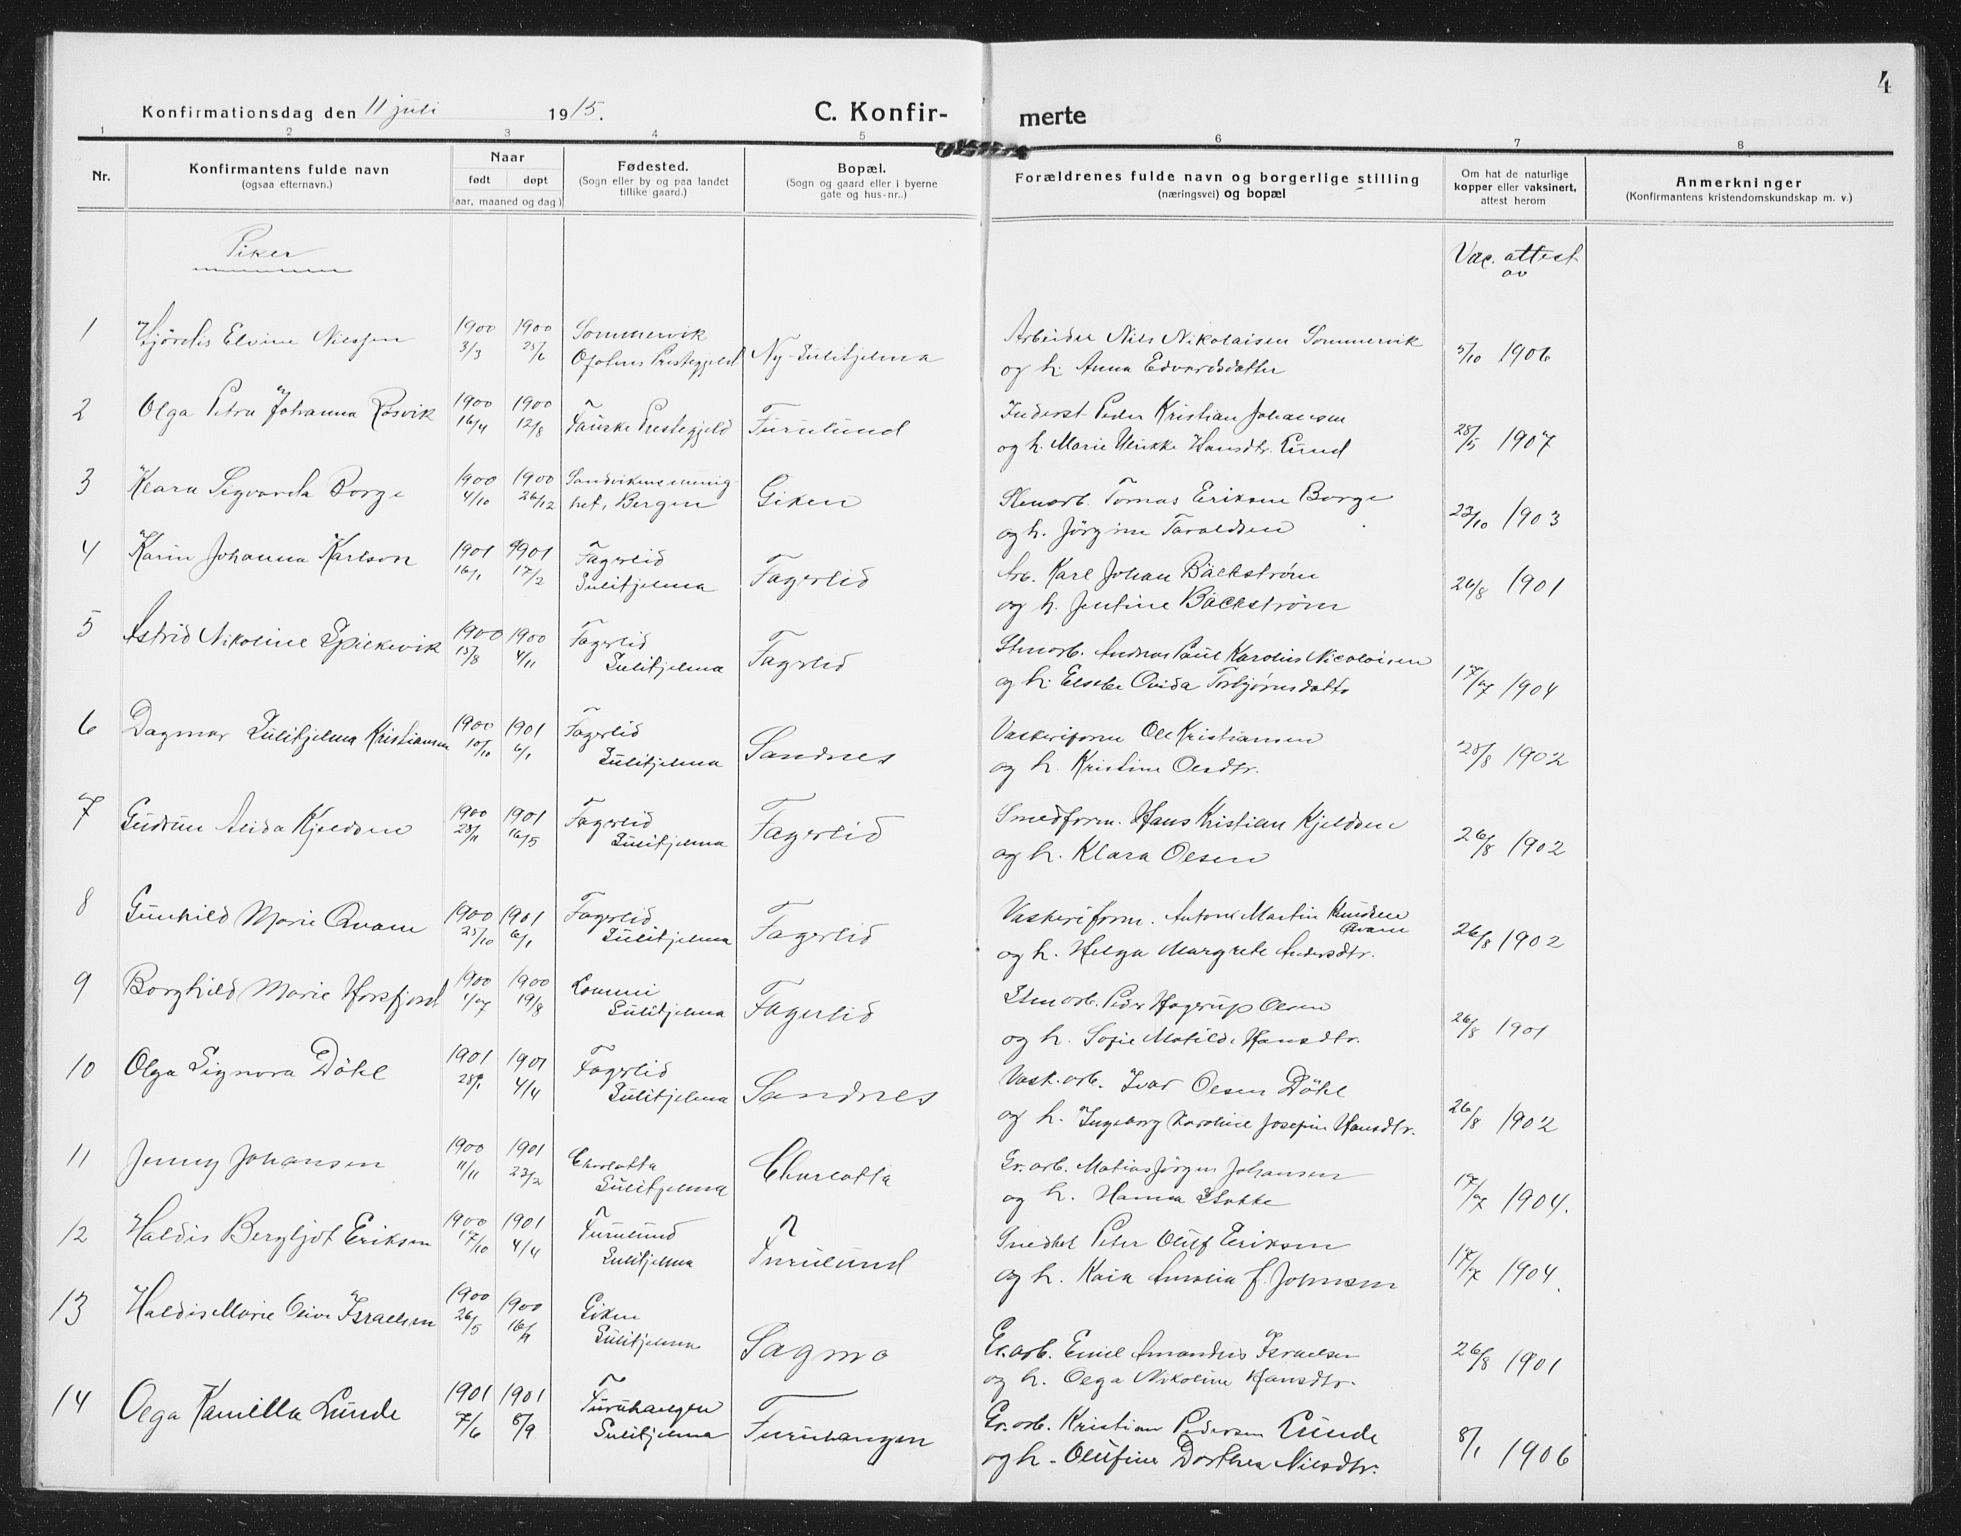 4
Konfirmationsdag den 11 juli 1915. C. Konfir- merte
1 2 3 4 5 6 7 8
Nr.
Konfirmantens fulde navn
(ogsaa efternavn.)
Naar
født døpt
(aar, maaned og dag)
Fødested.
(Sogn eller by og paa landet
tillike gaard.)
Bopæl.
(Sogn og gaard eller i byerne
gate og hus-nr..)
Forældrenes fulde navn og borgerlige stilling
(næringsvei) og bopæl
Om hat de naturlige
kopper eller vaksinert,
attest herom
Anmerkninger
(Konfirmantens kristendomskundskap m. v.)
Piker
Vac. attest
av
1 Hjördis Elvine Nilssen 1900 3/3 1900 25/6 Sommervik Ofotens Prestegjeld Ny-Sulitjelma
Arbeider Nils Nikolaisen Sommervik
og h. Anna Edvardsdatter 3/10 1906
2 Olga Petra Johanna Rosvik 1900 16/4 1900 12/8 Fauske Prestegjeld Furulund
Inderst Peder Kristian Johansen
og h. Marie Ulrikke Hansdtr. Lund 28/5 1907
3 Klara Sigvarda Borge 1900 4/10 1900 26/12 Sandvikens menighet, Bergen Giken
Stenarb. Tomas Eriksen Borge
og h. Jörgine Taraldsen 23/10 1903
4 Karin Johanna Karlson 1901 16/1 1901 17/2 Fagerlid Sulitjelma Fagerlid
Arb. Karl Johan Bäckstrøm
og h. Jentine Bäckstrøm 26/8 1901
5 Astrid Nikoline Spickevik 1900 15/8 1900 4/11 Fagerlid Sulitjelma Fagerlid
Stenarb. Andreas Paul Karolius Nicolaisen
og h. Elsebe Ovida Torbjørnsdatter 17/07 1904
6 Dagmar Sulitjelma Kristiansen 1900 10/10 1901 6/1 Fagerlid Sulitjelma Sandnes
Vaskeriform Ole Kristiansen
og h. Kristine Olsdtr. 28/8 1902
7 Gudrun Alida Kjeldsen 1900 28/11 1901 16/5 Fagerlid Sulitjelma Fagerlid
Smedform. Hans Kristian Kjeldsen
og h. Klara Olsen 26/8 1902
8 Gunhild Marie Qvam 1900 25/10 1901 6/1 Fagerlid Sulitjelma Fagerlid
Vaskeriform. Anton Martin Knudsen Qvam
og h. Helga Margrete Andersdtr. 26/8 1902
9 Borghild Marie Horsfjord 1900 1/07 1900 19/8 Lommi Sulitjelma Fagerlid
Stenarb. Peder Hagerup Olsen
og h. Sofie Matilde Hansdtr. 26/8 1901
10 Olga Signora Döhl 1901 28/1 1901 4/4 Fagerlid Sulitjelma Sandnes
Vask.arb. Ivar Olsen Döhl
og h. Ingeborg Karoline Josefin Hansdtr. 26/8 1902
11 Jenny Johansen 1900 11/11 1901 23/2 Charlotta Sulitjelma Charlotta
Gr. arb. Matias Jörgen Johansen
og h. Hanna Stokke 17/07 1904.
12 Haldis Bergljot Eriksen 1900 17/10 1901 4/4 Furulund Sulitjelma Furulund
Smedhel. Peter Oluf Eriksen
og h. Kaia Amalia f. Johnsen 17/07 1904.
13 Haldis Marie Olive Israelsen 1900 26/5 1900 16/9 Giken Sulitjelma Sagmo
Gr.arb. Emil Amandus Israelsen
og h. Olga Nikoline Hansdtr. 26/8 1901
14 Olga Kamilla Lunde 1901 7/6 1901 8/9 Furuhaugen Sulitjelma Furuhaugen
Gr. arb. Kristian Pedersen Lunde
og h. Olufine Dorthea Nilsdtr. 8/1 1906